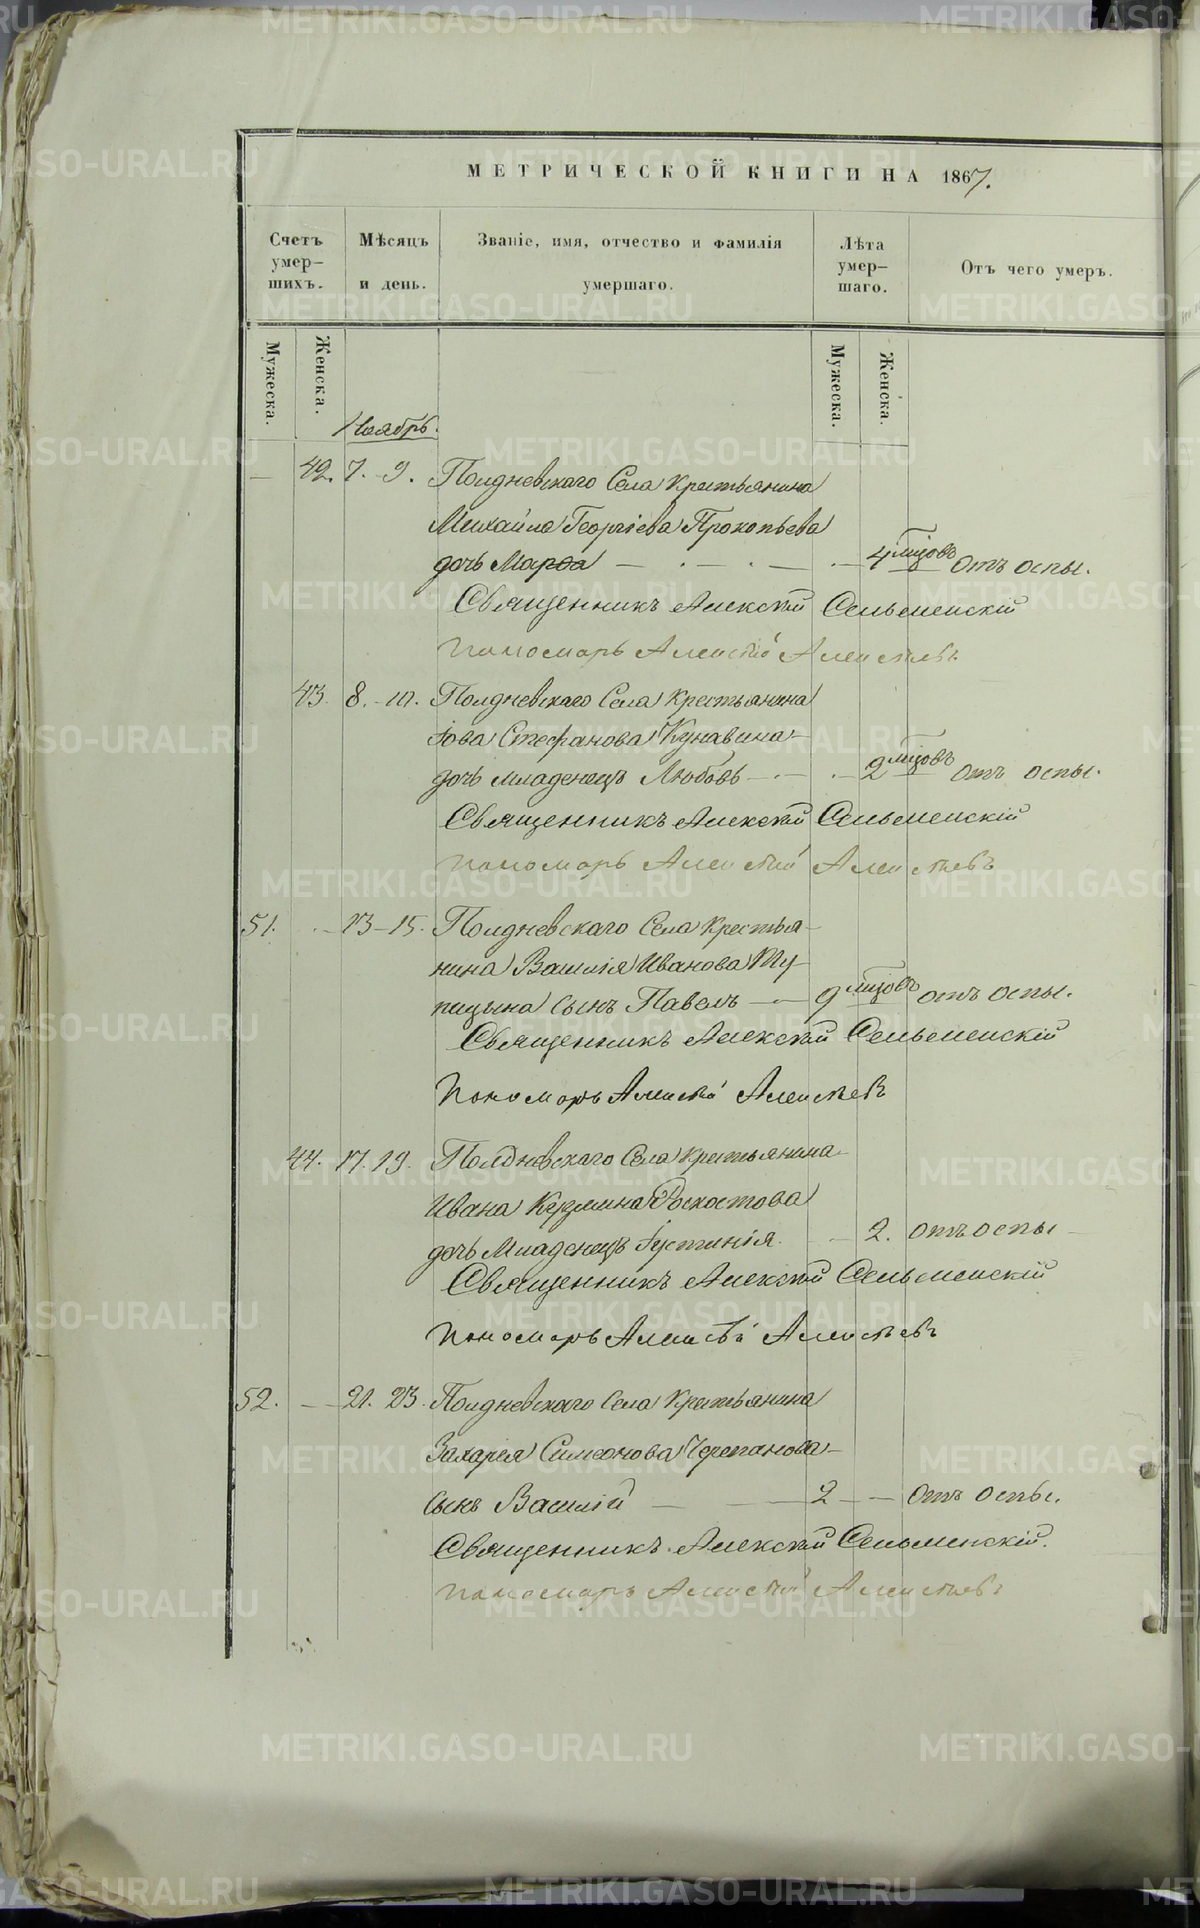 МЕТРИЧЕСКОЙ КНИГИ НА 1867.
Счетъ умер-шихъ.
Мѣсяцъ и день.
Званіе, имя, отчество и фамилія умершаго.
Лѣта умер-шаго.
Отъ чего умеръ.
Мужеска.
Женска.
Мужеска.
Женска.
Ноябрь.
— 42. 7. 9. Полдневскаго Села Крестьянина
Михаила Георгіева Прокопьева
дочь Марфа — 4 мцовъ отъ оспы.
Священникъ Алексій Сельменскій
Пономарь Алексій
43. 8. - 10. Полдневскаго Села Крестьянина
Іова Стефанова Кунавина
дочь младенецъ Любовь — 2 мцовъ отъ оспы.
Священникъ Алексій Сельменскій
Пономарь Алексій
51. — 13-15. Полдневскаго Села Крестья-
нина Василія Иванова Ту-
пицына сынъ Павелъ — 9 мцовъ отъ оспы.
Священникъ Алексій Сельменскій
Пономарь Алексій
44. 17. 19. Полдневскаго Села Крестьянина
Ивана Кузмина
дочь Младенецъ Іустинія — 2. отъ оспы
Священникъ Алексій Сельменскій
Пономарь Алексій
52. — 21. 23. Полдневскаго Села Крестьянина
Захарія Симеонова Черепанова
сынъ Василій — 2 — отъ оспы.
Священникъ Алексій Сельменскій.
Пономарь Алексій
METRIKI.GASO-URAL.RU